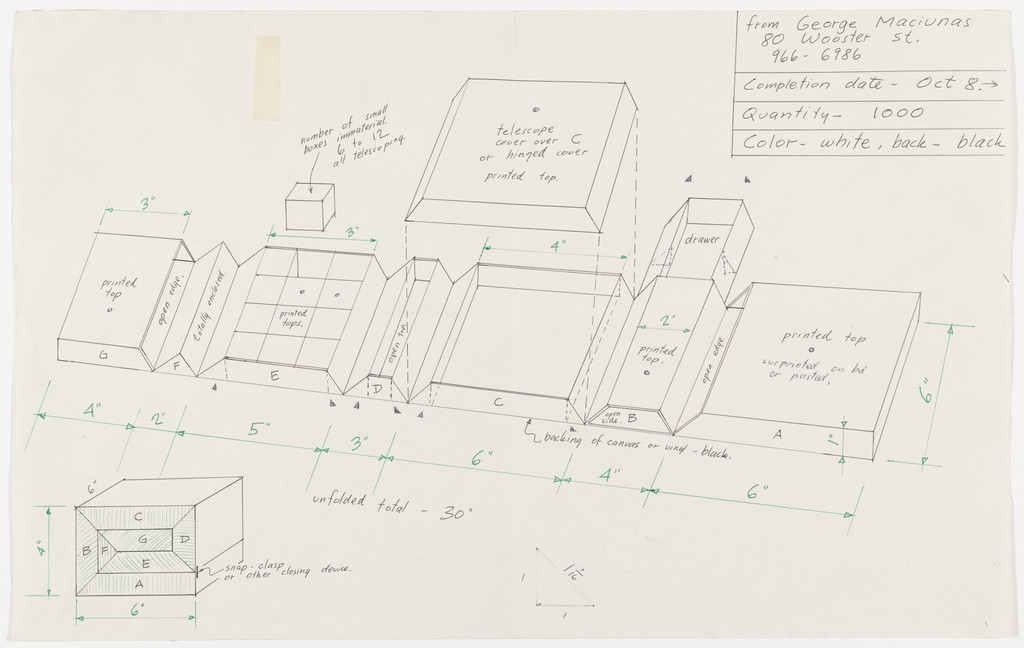 from George Maciunas
80 Wooster st.
966-6986
Completion date - Oct 8.→
Quantity- 1000
Color- white, back- black
number of small
boxes immaterial.
6 to 12
all telescoping.
telescope
cover over C
or hinged cover
printed top.
3"
3"
4"
drawer
printed
top
open edge.
totally enclosed.
printed
tops.
open top
2"
printed
top.
open edge
printed top
surprinted on bd
or pasted,
6"
1"
G
F
E
D
C
open
side.
B
A
backing of canvas or vinyl - black.
4"
2"
5"
3"
6"
4"
6"
unfolded total - 30"
6"
C
G
D
B
F
E
A
4"
6"
snap-clasp
or other closing device.
1
1 7/16
1